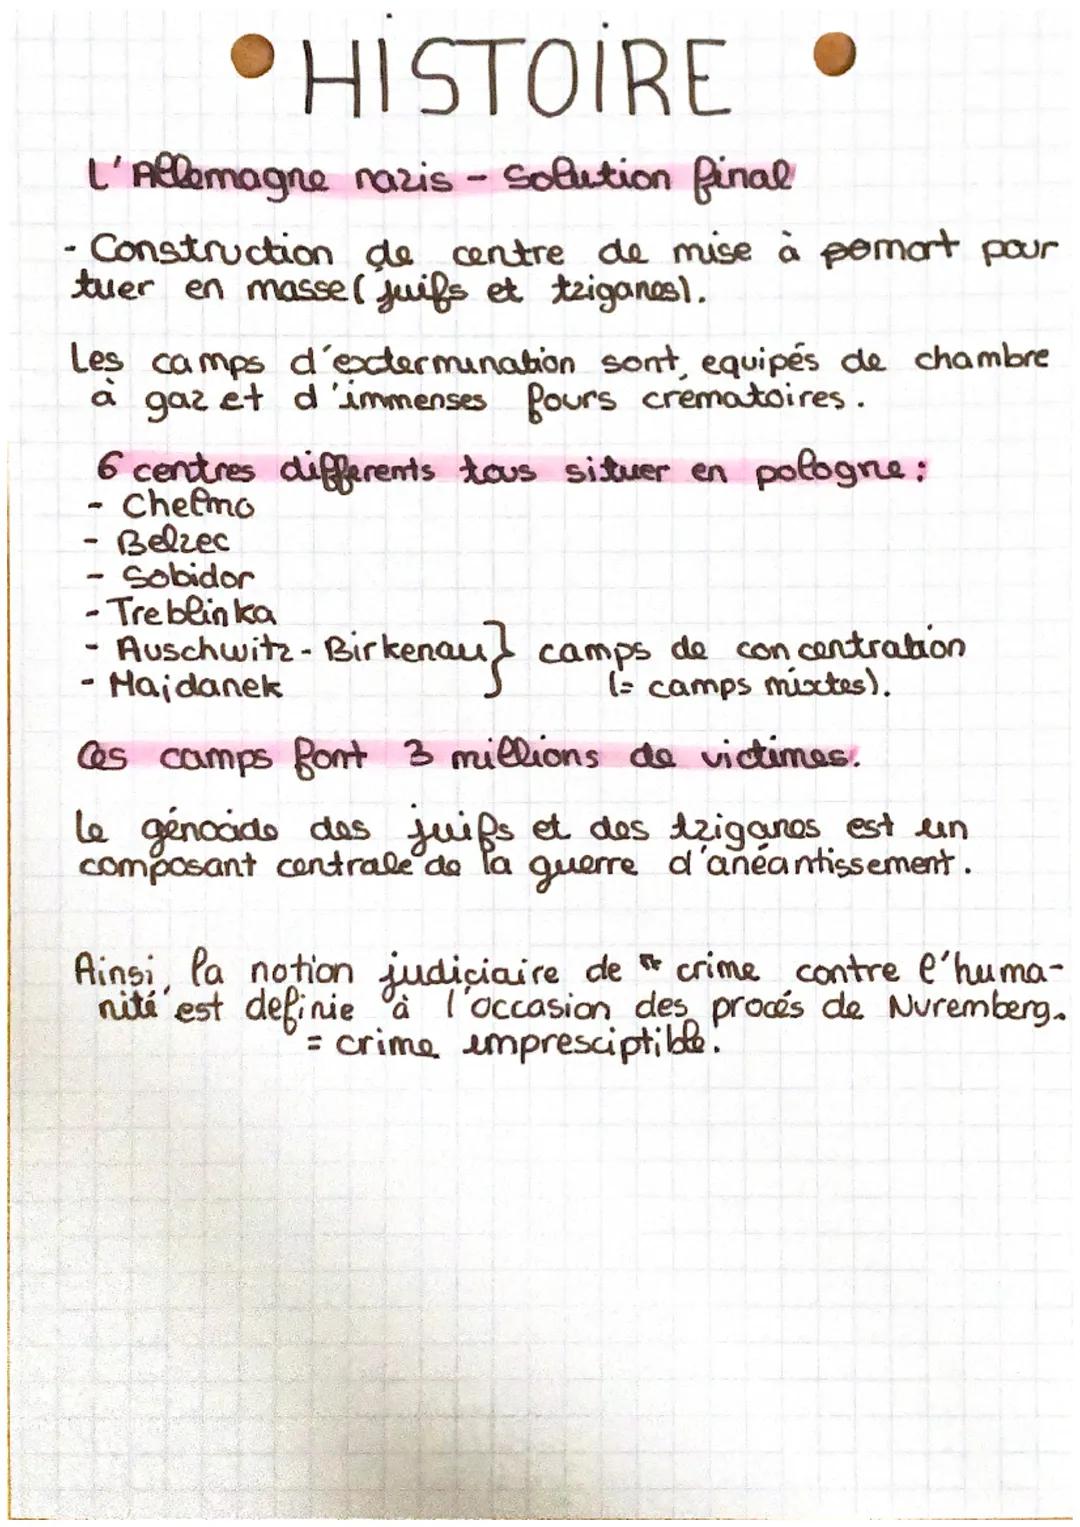 • HISTOIRE •
L'Allemagne nazis - Solution final
- Construction de centre de mise à mort pour
tuer en masse (juifs et tziganes).
Les camps d'extermination sont equipés de chambre
à gaz et d'immenses fours crématoires.
6 centres differents tous situer en pologne :
- Chelmo
- Belzec
- Sobidor
- Treblinka
- Auschwitz - Birkenau } camps de concentration
- Majdanek (= camps mixtes).
Ces camps font 3 millions de victimes.
Le génocide des juifs et des tziganes est un
composant centrale de la guerre d'anéantissement.
Ainsi, la notion judiciaire de " crime contre l'huma-
nité" est definie à l'occasion des procés de Nuremberg.
= crime impresciptible.